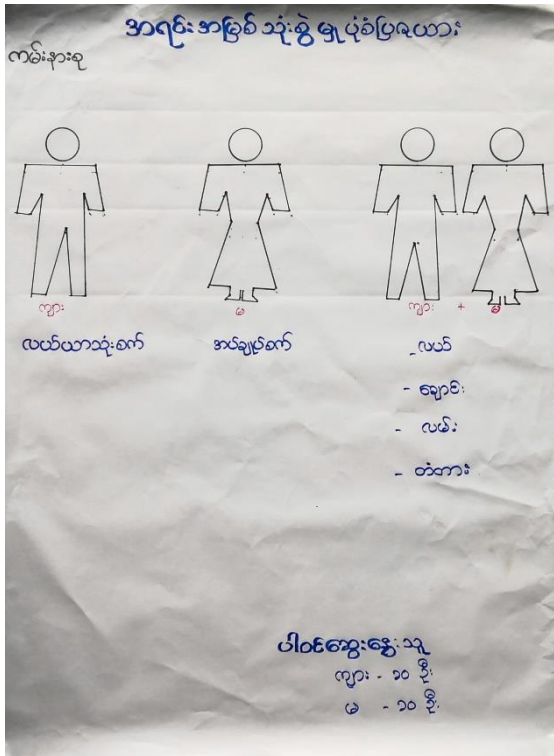 အရင်းအမြစ် သုံးစွဲ မှု ပုံစံပြဇယား
ကမ်းနားစု
ကျား
မ
ကျား + မ
လယ်ယာသုံးစက်
အပ်ချုပ်စက်
- လယ်
- ချောင်း
- လမ်း
- တံတား
ပါဝင်ဆွေးနွေးသူ
ကျား - ၁၀ ဦး
မ - ၁၀ ဦး